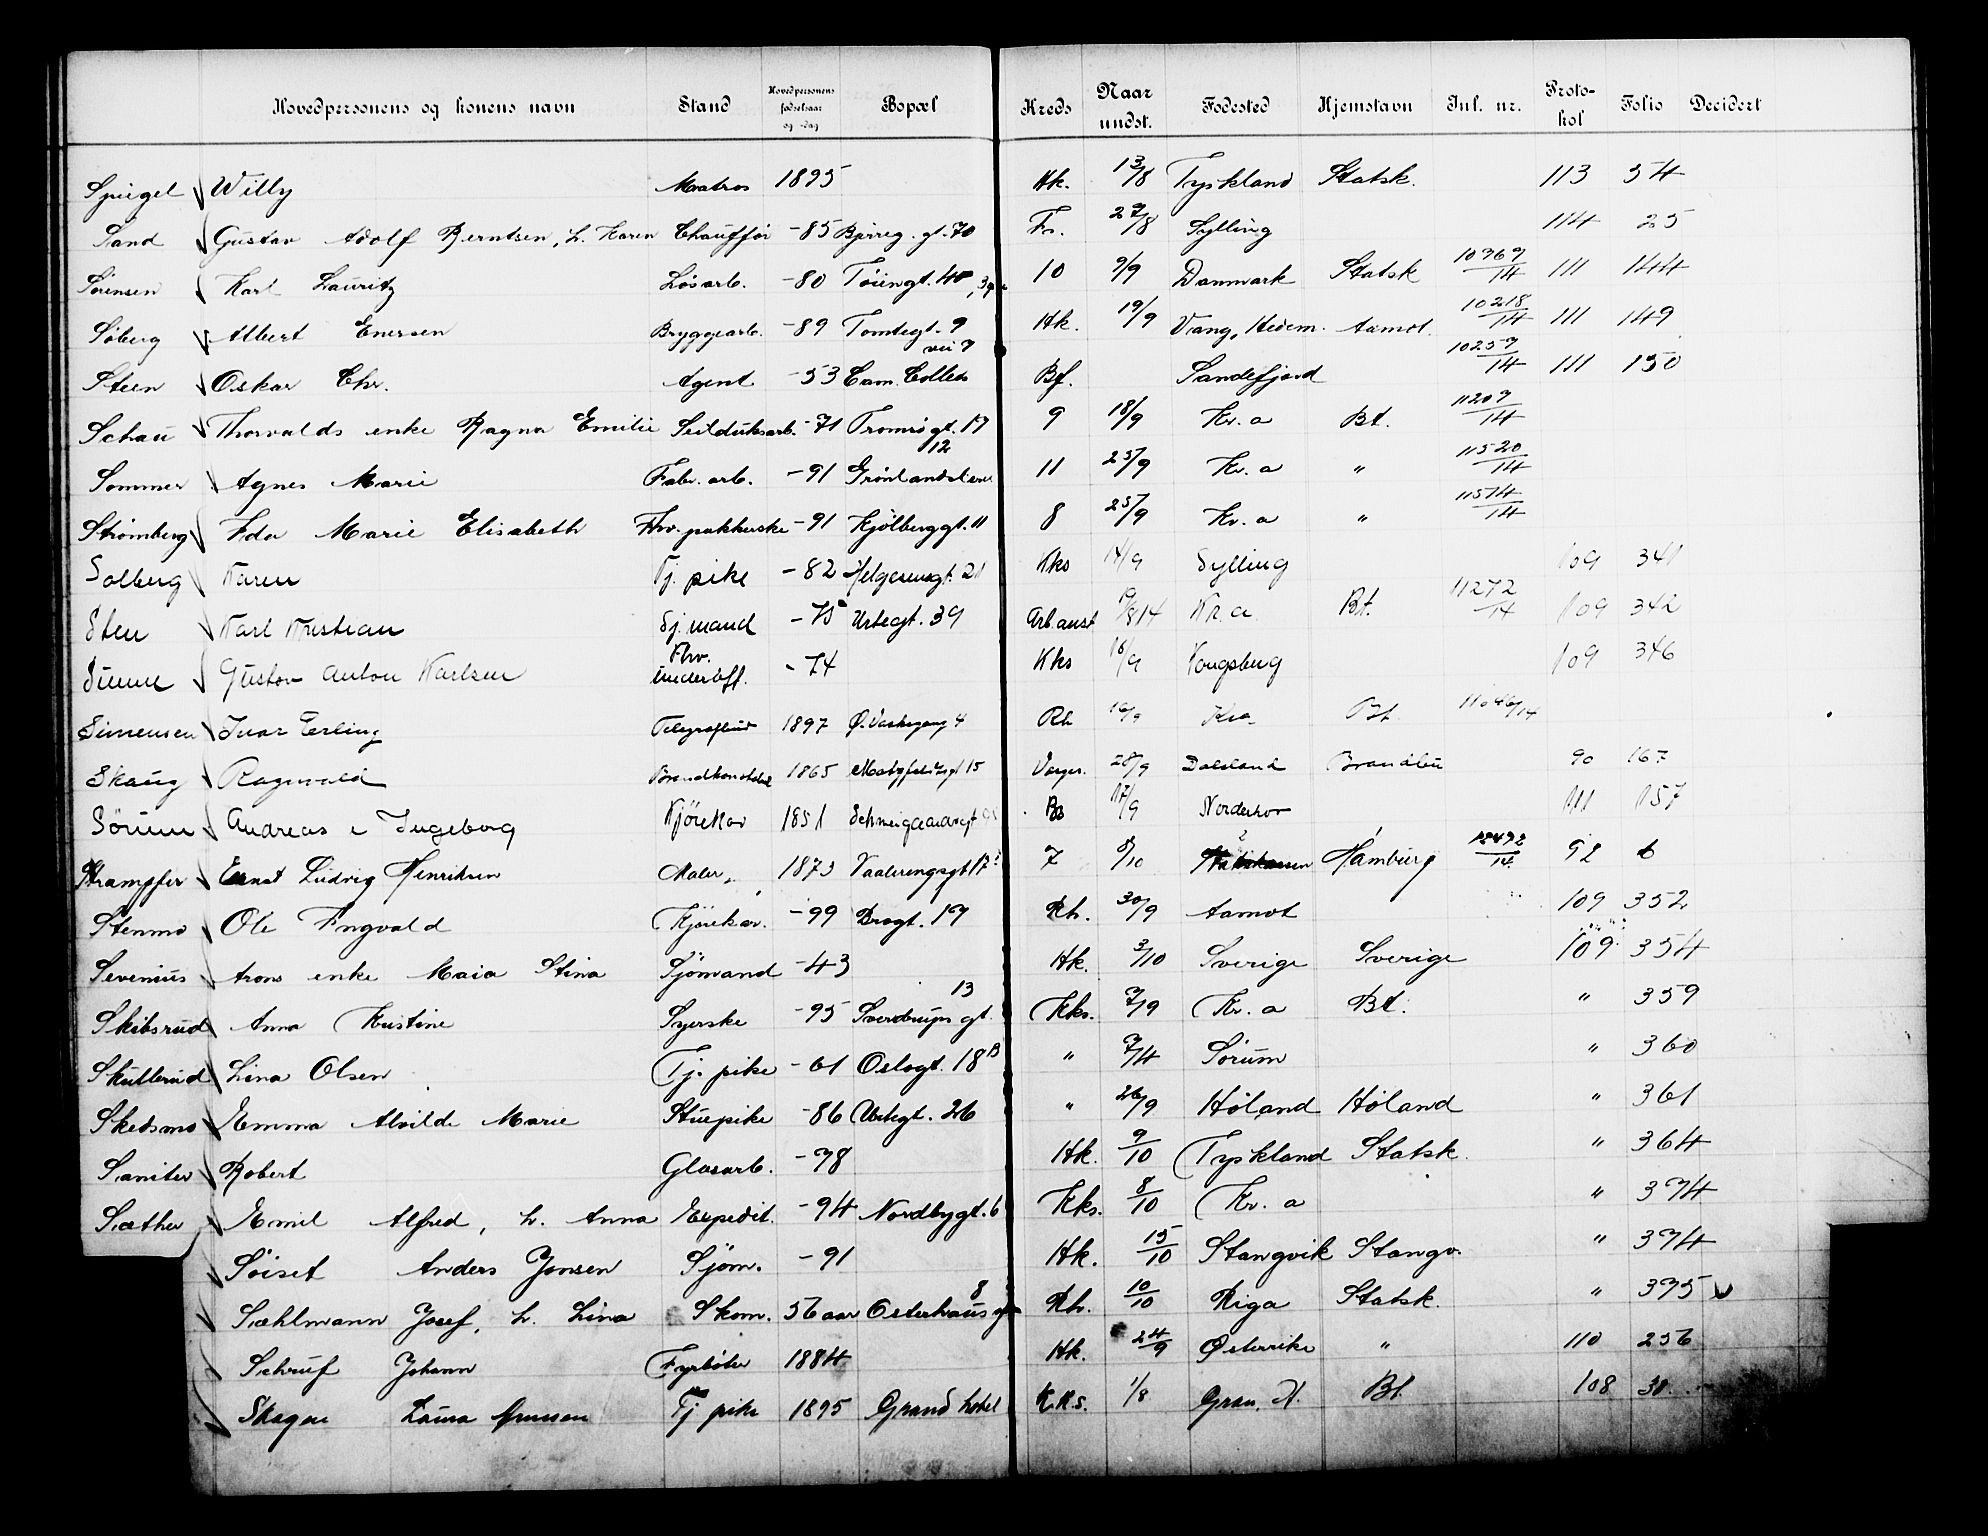 Hovedpersonens og konens navn Stand Hovedpersonens fødselsaar og -dag Bopæl Kreds Naar undst. Fødested Hjemstavn Inl. nr. Protokol Folio Decidert
Spiegel Willy Matros 1895 Hk. 13/8 Tyskland Statsk. 113 54
Sand Gustav Adolf Berntsen, h. Karen Chauffør -85 Bjerreg. gt. 70 Fr. 27/8 Sylling 114 25
Sørensen Karl Lauritz Løsarb. -80 Tøiengt. 40 10 9/9 Danmark Statsk 10369/14 111 144
Søberg Albert Enersen Bryggearb. -89 Tomtegt. 9 Hk. 19/9 Vang, Hedem. Aamot. 10218/14 111 149
Steen Oskar Chr. Agent -53 Cam. Colletts vei 7 Bf. Sandefjord 10259/14 111 150
Schau Thorvalds enke Ragna Emilie Seilduksarb. -71 Tromsøgt. 17 9 18/9 Kr.a Bt. 11209/14
Sommer Agnes Marie Fabr. arb. -91 Grønlandsleret 12 11 25/9 Kr.a " 11520/14
Strømberg Ida Marie Elisabeth Fhv. pakkerske -91 Kjølberggt. 11 8 25/9 Kr.a " 11574/14
Solberg Karen Tj. pike -82 Helgesensgt. 21 Kks 14/9 Sylling 109 341
Sten Karl Kristian Sj. mand -75 Urtegt. 39 Arb. anst 19/8 14 Kr.a. Bt. 11272/14 109 342
Sunne Gustav Anton Karlsen Fhv. underoff. -74 Kks 16/9 Kongsberg 109 346
Simensen Ivar Erling Telegrafbud 1897 Ø. Vaskegang 4 Rh 16/9 Kra. Bt. 11046/14
Skaug Ragnvald Brandkonstabel 1865 15 Varger. 28/9 Dalsland Brandbu 90 167
Sörum Andreas e Ingeborg Kjörekar 1851 Schweigaardsgt Bb 17/9 Norderhov 111 157
Strampfer Ernst Ludvig Henriksen Maler 1873 Vaalerengsgt 17 7 8/10 Hamburg 12492/14 92 6
Stenmo Ole Ingvald Kjørekar. -99 Brogt. 19 Rh. 30/9 Aamot 109 352
Sevenius Arons enke Maia Stina Sjömand -43 Hk. 3/10 Sverige Sverige 109 354
Skibsrud Anna Kristine Syerske -95 Sverdrups gt. 13 Kks. 7/9 Kr.a Bt. " 359
Skullerud Lina Olsen Tj. pike -61 Oslogt. 18B " 7/4 Sørum " 360
Skedsmo Emma Alvilde Marie Stuepike -86 Urtegt. 26 " 26/9 Høland Høland " 361
Saniter Robert Glasarb. -78 Hk. 9/10 Tyskland Statsk. " 364
Sæther Emil Alfred, h. Anna Expedit. -94 Nordbygt. 6 Kks. 8/10 Kr. a " 374
Søiset Anders Jonsen Sjøm. -91 Hk. 15/10 Stangvik Stangv. " 374
Sæhlmann Josef, h. Lina Skom. 56 aar Osterhaus gt 8 Rh. 10/10 Riga Statsk. " 375
Schruf Johann Fyrbøter 1884 Hk. 24/9 Østerrike " 110 256
Skagen Laura Tj. pike 1895 Grand hotel K.K.s. 1/8 Gran, H. Bt. 108 30